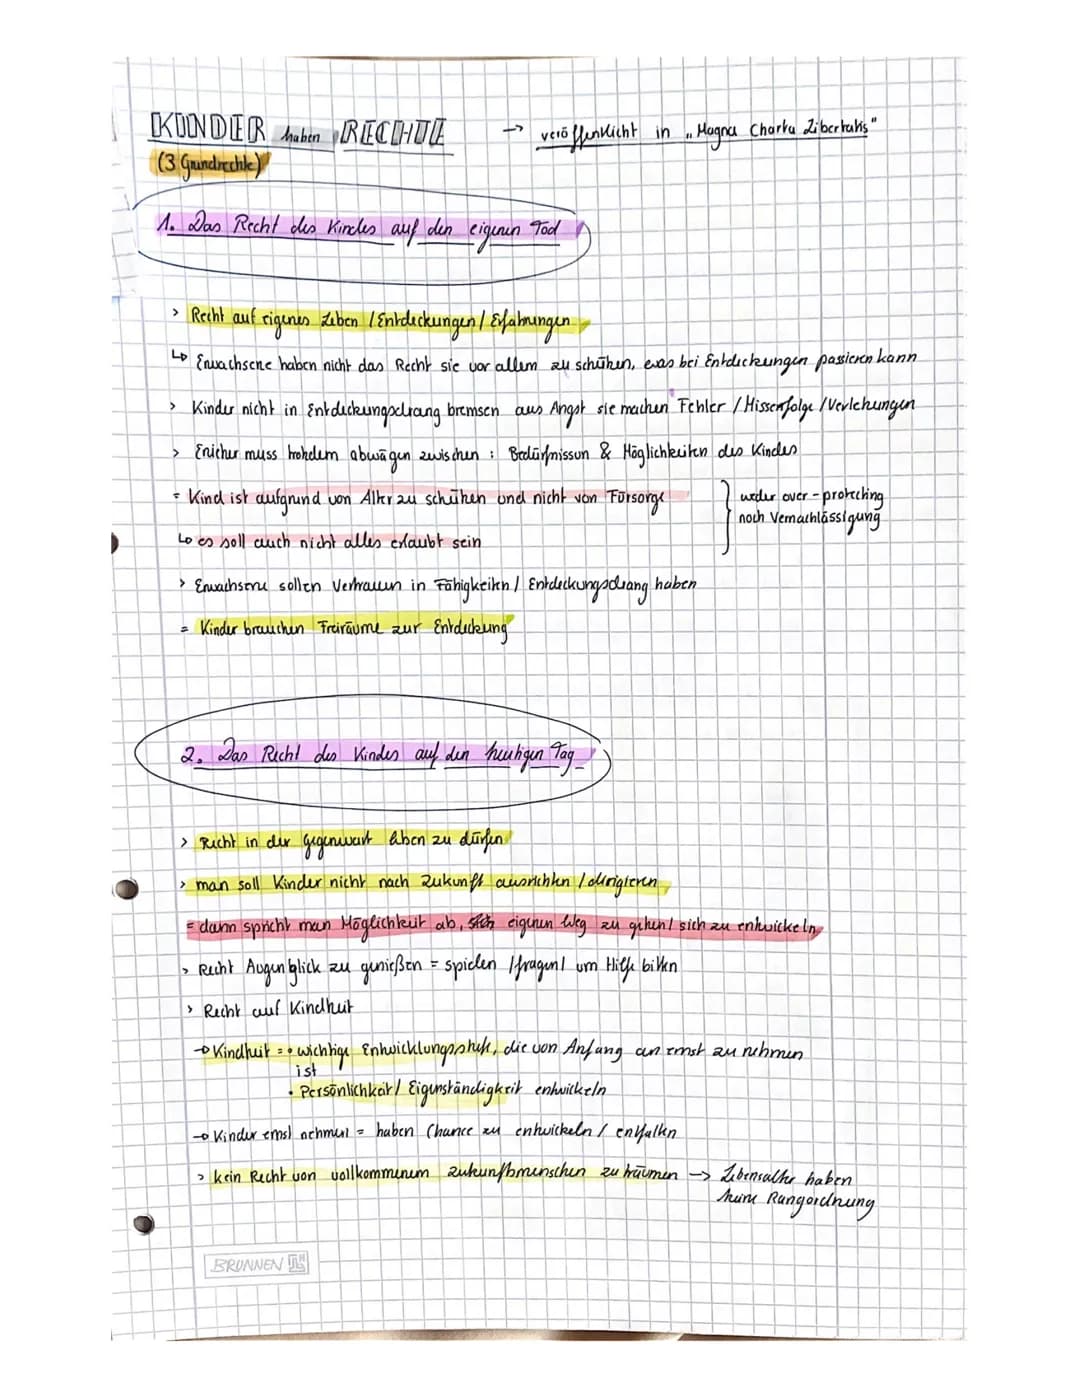 KINDER haben RECHTE → veröffentlicht in „Magna Charta Libertatis"
(3 Grundrechte)
1. Das Recht des Kindes auf den eigenen Tod
> Recht auf eigenes Leben / Entdeckungen / Erfahrungen
↳ Erwachsene haben nicht das Recht sie vor allem zu schützen, was bei Entdeckungen passieren kann
> Kinder nicht in Entdeckungsdrang bremsen aus Angst sie machen Fehler / Misserfolge / Verletzungen
> Erzieher muss trotzdem abwägen zwischen : Bedürfnissen & Möglichkeiten des Kindes
= Kind ist aufgrund von Alter zu schützen und nicht von Fürsorge } weder over-protecting
noch Vernachlässigung
↳ es soll auch nicht alles erlaubt sein
> Erwachsene sollen Vertrauen in Fähigkeiten / Entdeckungsdrang haben
= Kinder brauchen Freiräume zur Entdeckung
2. Das Recht des Kindes auf den heutigen Tag
> Recht in der Gegenwart leben zu dürfen
> man soll Kinder nicht nach Zukunft ausrichten / dirigieren
= dann spricht man Möglichkeit ab, eigenen Weg zu gehen / sich zu entwickeln
> Recht Augenblick zu genießen = spielen / fragen / um Hilfe bitten
> Recht auf Kindheit
→ Kindheit = • wichtige Entwicklungsstufe, die von Anfang an ernst zu nehmen
ist
• Persönlichkeit / Eigenständigkeit entwickeln
→ Kinder ernst nehmen = haben Chance zu entwickeln / entfalten
> kein Recht von vollkommenem Zukunftsmenschen zu träumen → Lebensalter haben
keine Rangordnung
BRUNNEN